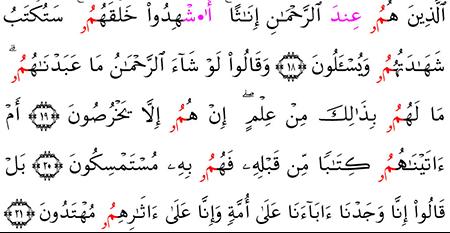 ٱلَّذِينَ هُمُۥ عِندَ ٱلرَّحْمَٰنِ إِنَٰثًا ۚ أَ•شْهِدُوا۟ خَلْقَهُمُۥ ۚ سَتُكْتَبُ
شَهَٰدَتُهُمُۥ وَيُسْـَٔلُونَ ١٨ وَقَالُوا۟ لَوْ شَآءَ ٱلرَّحْمَٰنُ مَا عَبَدْنَٰهُمُۥ ۗ
مَا لَهُمُۥ بِذَٰلِكَ مِنْ عِلْمٍ ۖ إِنْ هُمُۥ إِلَّا يَخْرُصُونَ ١٩ أَمْ
ءَاتَيْنَٰهُمُۥ كِتَٰبًا مِّن قَبْلِهِۦ فَهُمُۥ بِهِۦ مُسْتَمْسِكُونَ ٢٠ بَلْ
قَالُوٓا۟ إِنَّا وَجَدْنَا ءَابَآءَنَا عَلَىٰٓ أُمَّةٍ وَإِنَّا عَلَىٰٓ ءَاثَٰرِهِمُۥ مُهْتَدُونَ ٢١